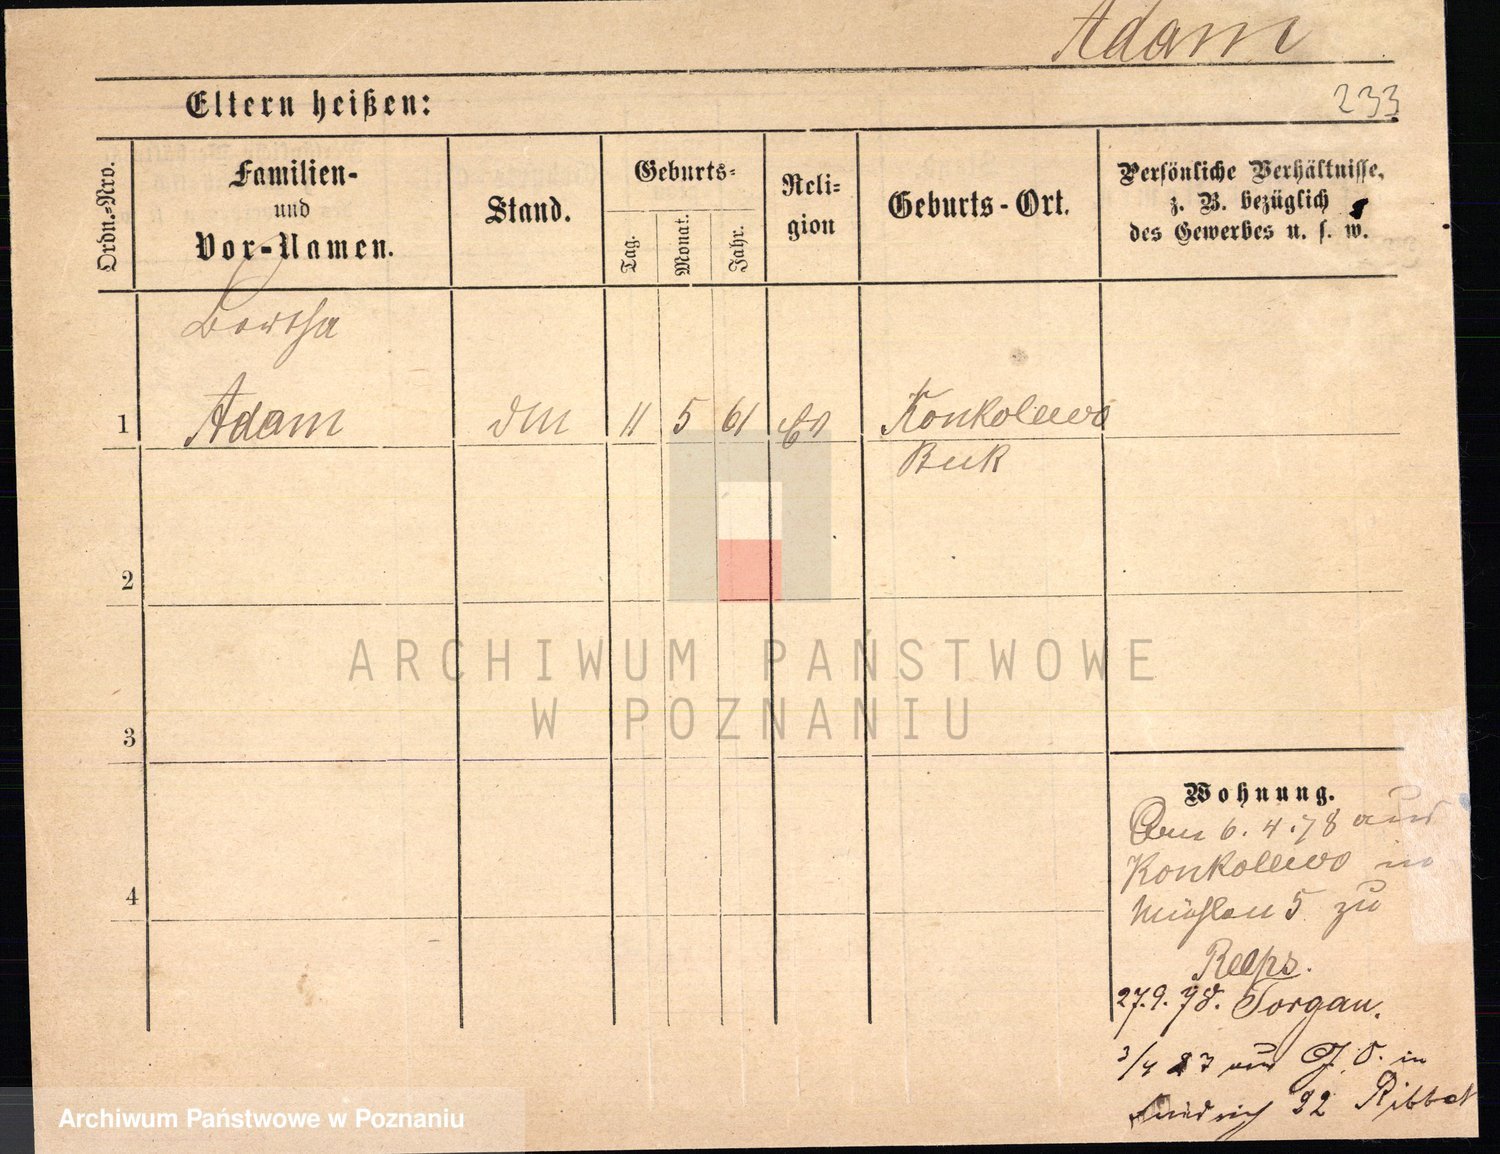 Adam
233
Eltern heißen:
Ordn.-Nro.
Familien-
und
Vor-Namen.
Stand.
Geburts-
Tag.
Monat.
Jahr.
Reli-
gion
Geburts-Ort.
Persönliche Verhältnisse,
z. B. bezüglich
des Gewerbes u. s. w.
Bertha
1 Adam 11 5 61 Ev Konkolewo
Buk
2
3
4
ARCHIWUM PAŃSTWOWE
W POZNANIU
Wohnung.
6.4.78 aus
Konkolewo in
Mühlen 5 zu
27.9.78. Torgau.
3/4 83 aus J. O. in
32 Ribbat
Archiwum Państwowe w Poznaniu